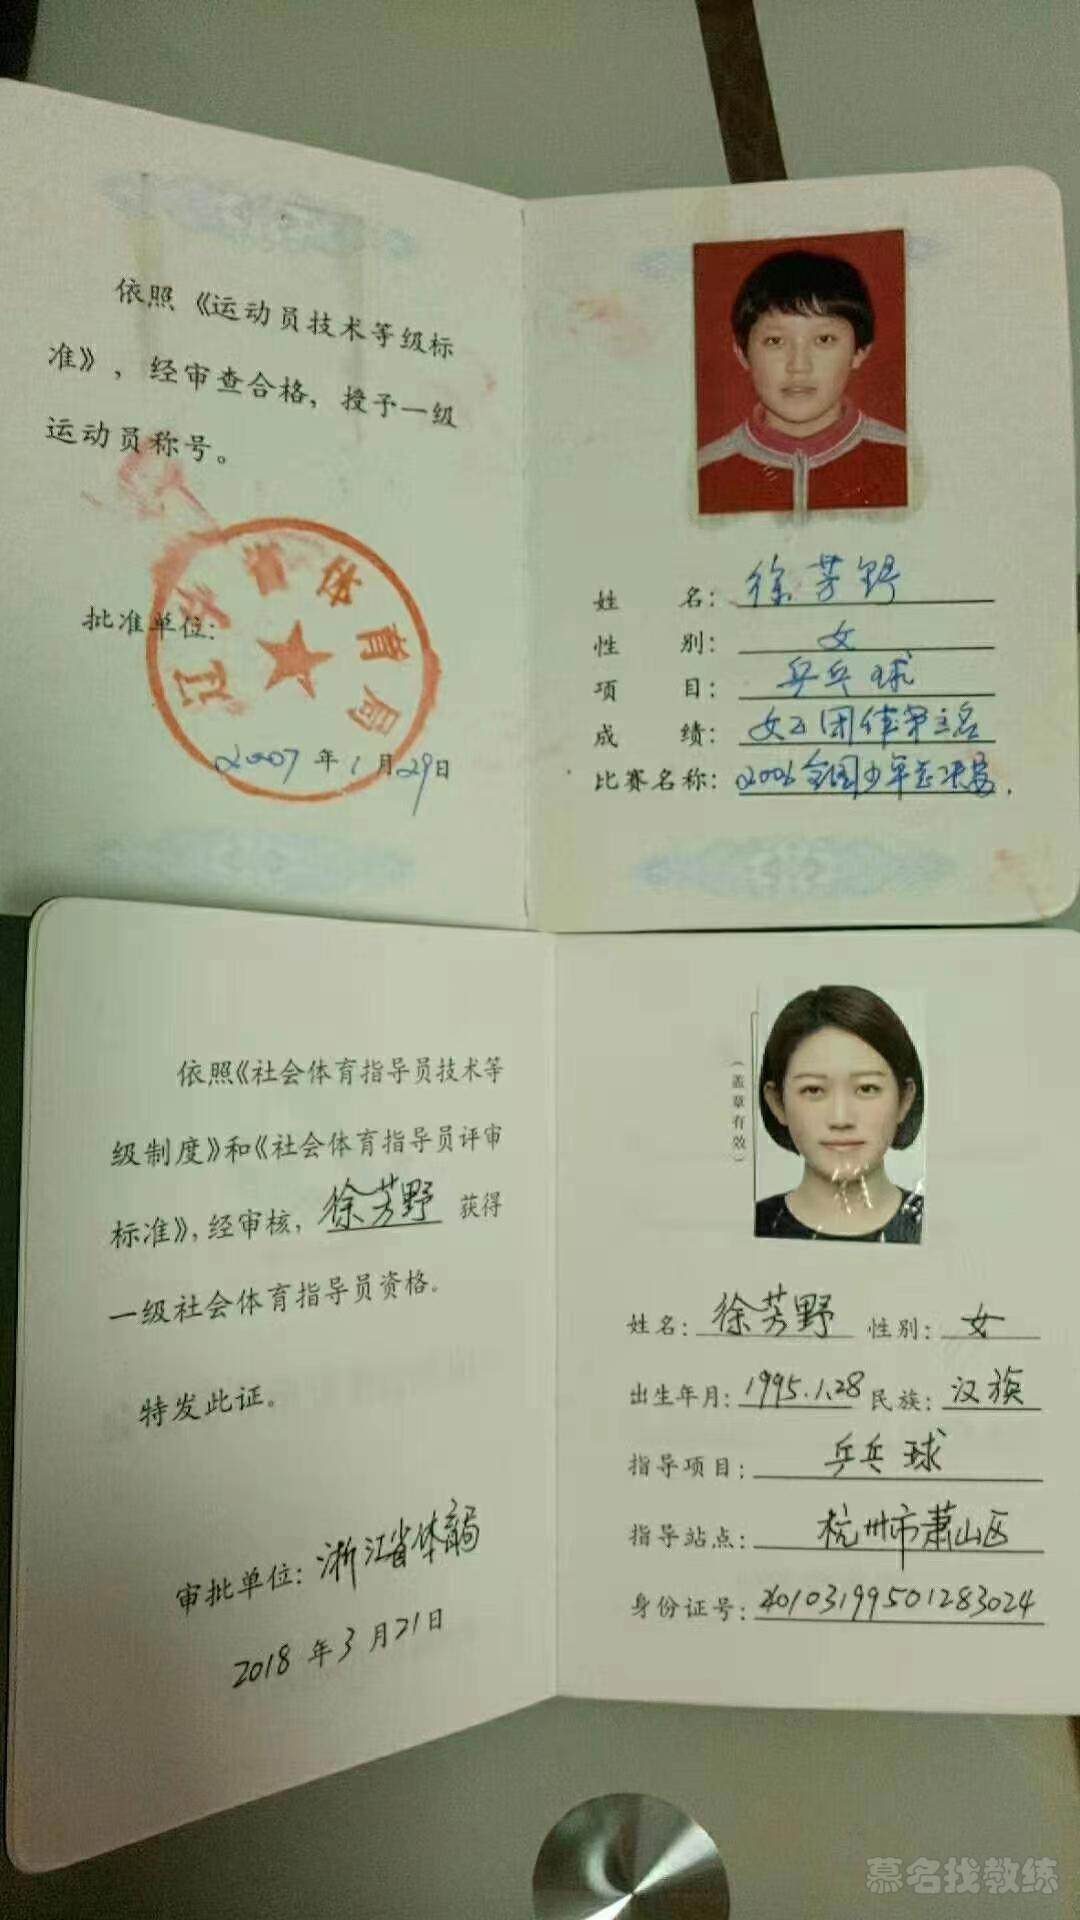 依照《运动员技术等级标
准》，经审查合格，授予一级
运动员称号。
批准单位：
江苏省体育局
2007年1月29日
姓　名：徐芳野
性　别：女
项　目：乒乓球
成　绩：女子团体第三名
比赛名称：2006全国少年总决赛.
依照《社会体育指导员技术等
级制度》和《社会体育指导员评审
标准》，经审核，徐芳野 获得
一级社会体育指导员资格。
特发此证。
审批单位：浙江省体育局
2018年3月21日
（盖章有效）
姓名：徐芳野 性别：女
出生年月：1995.1.28 民族：汉族
指导项目：乒乓球
指导站点：杭州市萧山区
身份证号：210103199501283024
慕名找教练